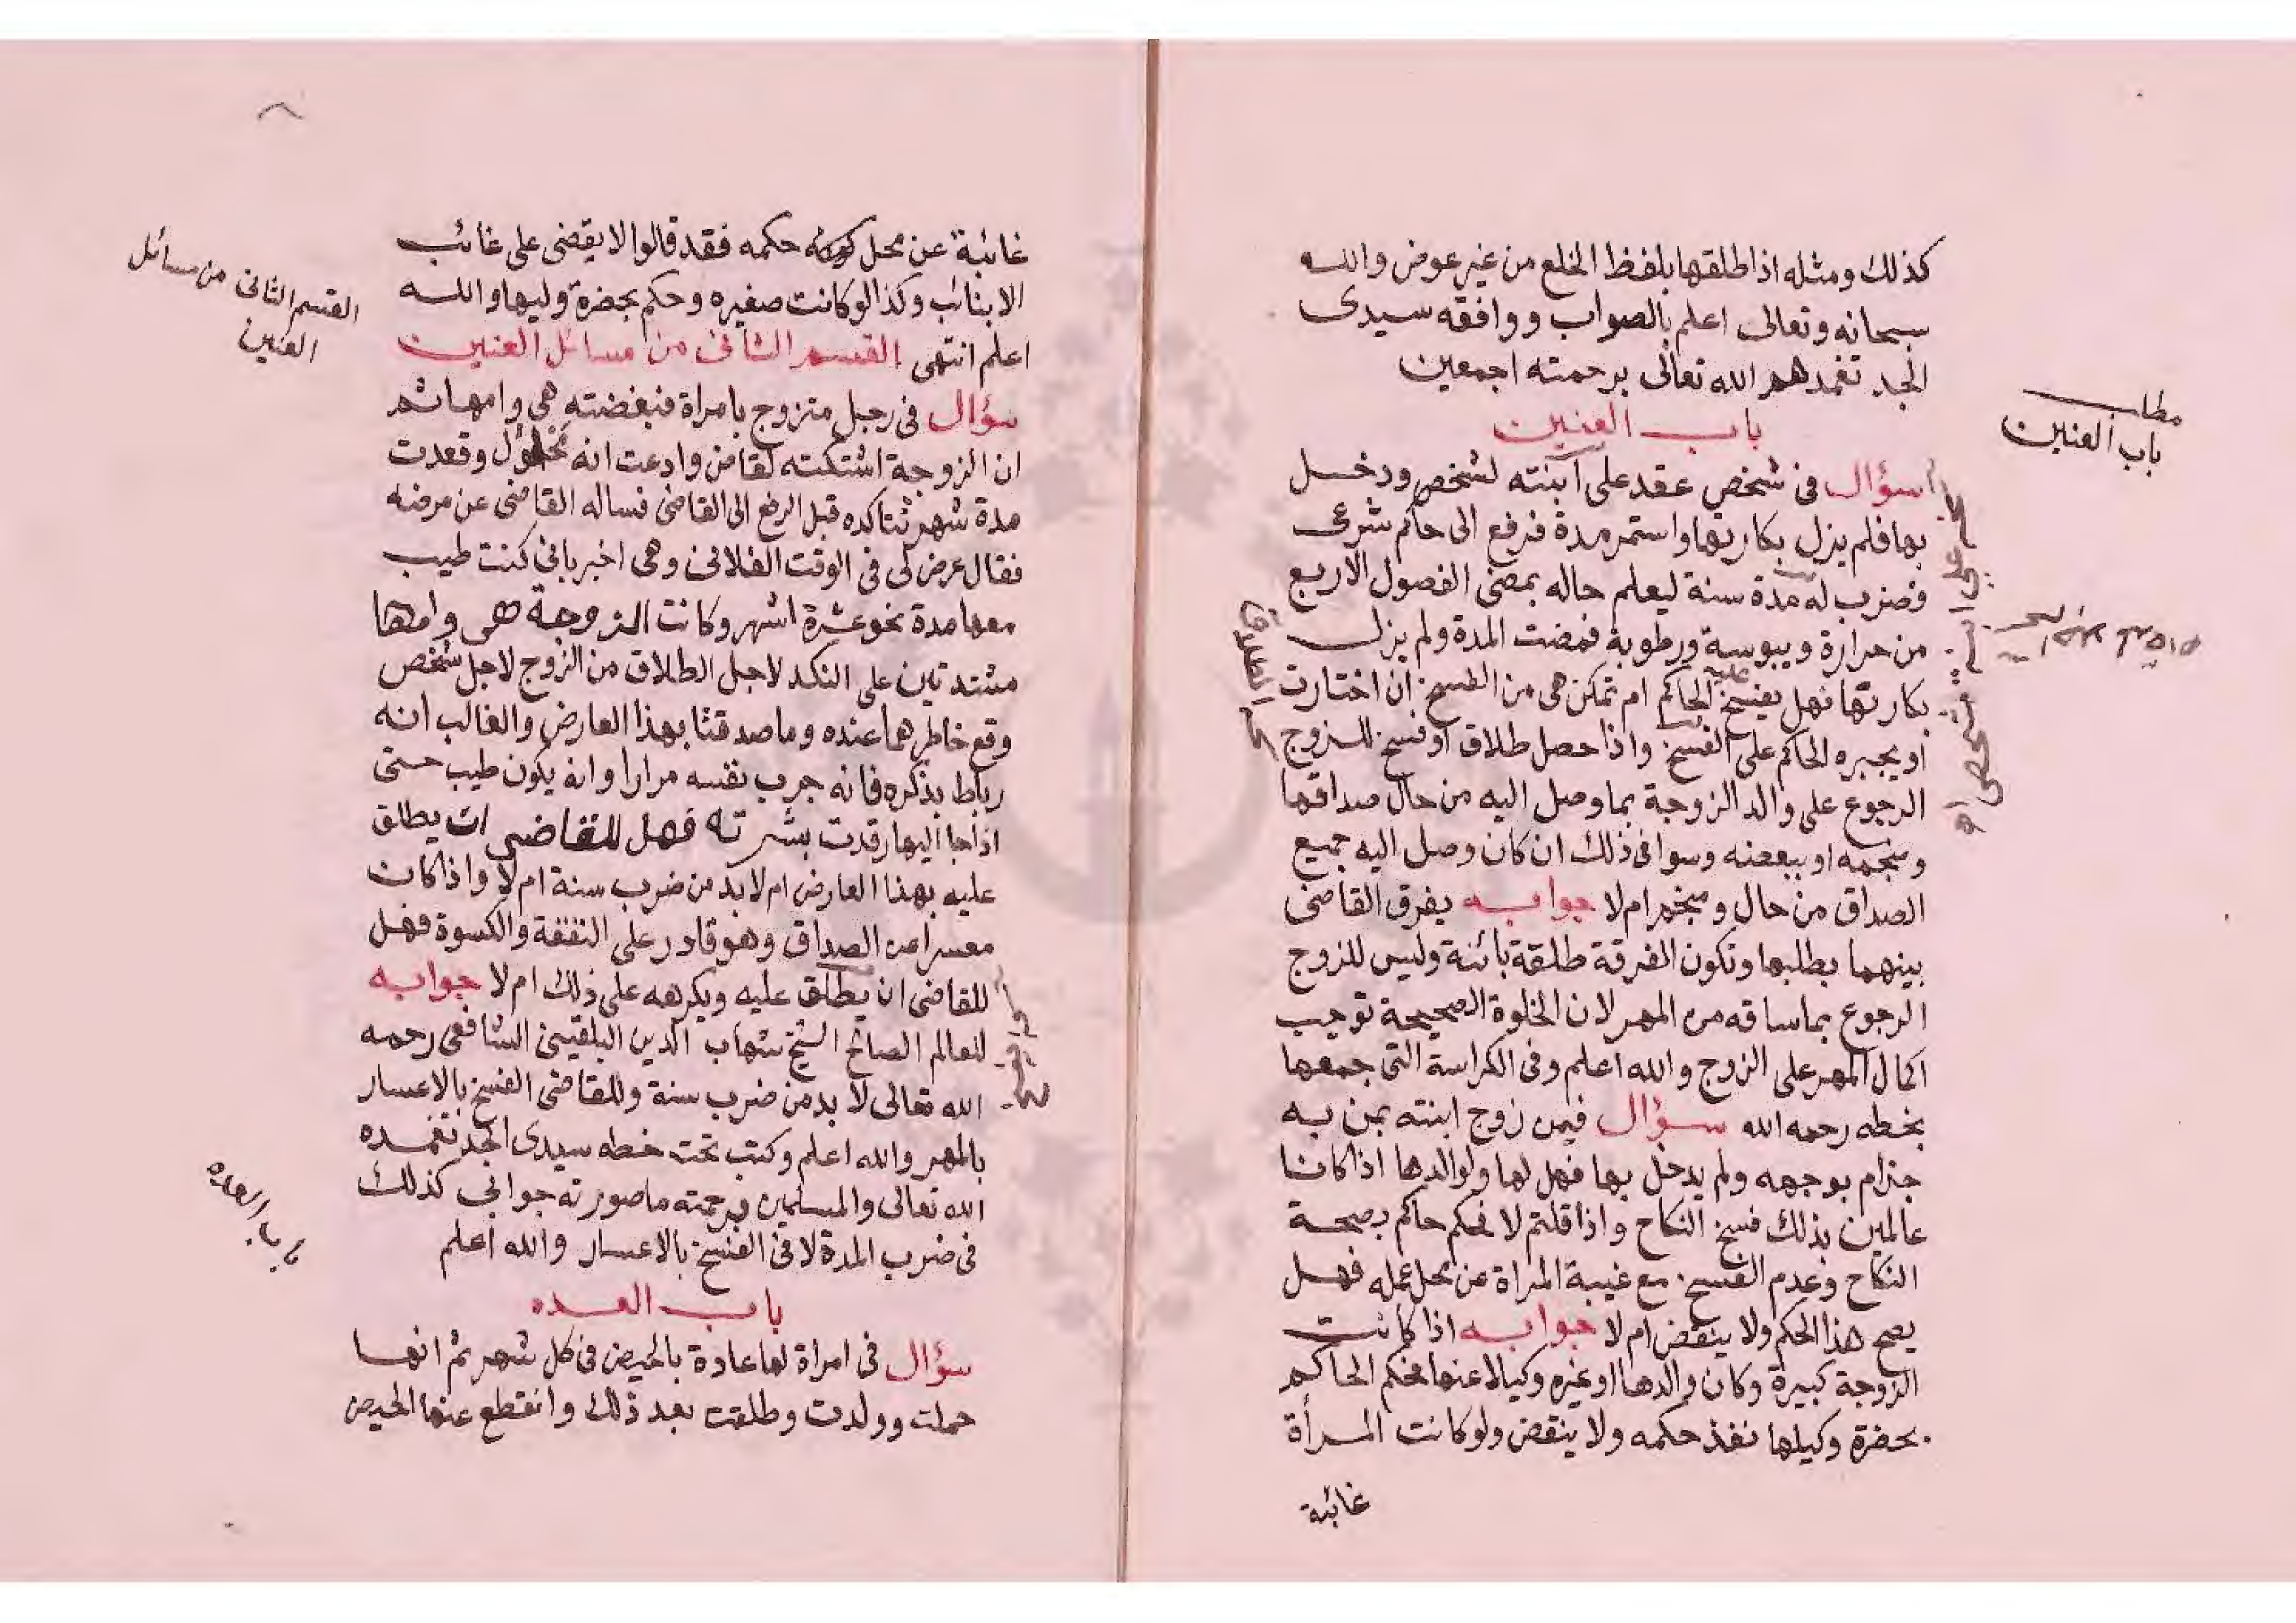 كذلك ومثله اذا طلقها بلفظ الخلع من غير عوض والله
سبحانه وتعالى اعلم بالصواب ووافقه سيدى
الجد تغمدهم الله تعالى برحمته اجمعين
باب العنين
سؤال فى شخص عقد على ابنته لشخص ودخل
بها فلم يزل بكارتها واستمر مدة فرفع الى حاكم شرعى
وضرب له مدة سنة ليعلم حاله بمضى الفصول الاربع
من حرارة ويبوسة ورطوبة فمضت المدة ولم يزل
بكارتها فهل يفسخ عليه الحاكم ام تمكن هى من الفسخ ان اختارت
او يجبره الحاكم على الفسخ واذا حصل طلاق او فسخ للزوج
الرجوع على والد الزوجة بما وصل اليه من حال صداقها
ومنجمه او ببعضه وسوا فى ذلك ان كان وصل اليه جميع
الصداق من حال ومنجم ام لا جوابه يفرق القاضى
بينهما بطلبها وتكون الفرقة طلقة بائنة وليس للزوج
الرجوع بما ساقه من المهر لان الخلوة الصحيحة توجب
اكمال المهر على الزوج والله اعلم وفى الكراسة التى جمعها
بخطه رحمه الله سؤال فيمن زوج ابنته بمن به
جذام بوجهه ولم يدخل بها فهل لها ولوالدها اذا كانا
عالمين بذلك فسخ النكاح واذا قلتم لا فحكم حاكم بصحة
النكاح وعدم الفسخ مع غيبة المراة عن محل عمله فهل
يصح هذا الحكم ولا ينقض ام لا جوابه اذا كانت
الزوجة كبيرة وكان والدها او غيره وكيلا عنها فحكم الحاكم
بحضرة وكيلها نفذ حكمه ولا ينقض ولو كانت المرأة
غائبة
مطلب
باب العنين
غائبة عن محل حكمه فقد قالوا لا يقضى على غائب
الا بنائب وكذا لو كانت صغيره وحكم بحضرة وليها والله
اعلم انتهى القسم الثانى من مسائل العنين
سؤال فى رجل متزوج بامراة فبغضته هى وامها ثم
ان الزوجة اشتكته لقاض وادعت انه وقعدت
مدة شهر قبل الرفع الى القاضى فساله القاضى عن مرضه
فقال عرض لى فى الوقت الفلانى وهى اخبر بانى كنت طيب
معها مدة نحو عشرة اشهر وكانت الزوجة هى وامها
مشتدتين على النكد لاجل الطلاق من الزوج لاجل شخص
وقع خاطرهما عنده وما صدقتا بهذا العارض والغالب انه
رباط بذكره فانه جرب نفسه مرارا وانه يكون طيب حتى
اذا جا اليها رقدت بشرته فهل للقاضى ان يطلق
عليه بهذا العارض ام لا بد من ضرب سنة ام لا واذا كان
معسرا عن الصداق وهو قادر على النفقة والكسوة فهل
للقاضى ان يطلق عليه ويكرهه على ذلك ام لا جوابه
للعالم الصالح الشيخ شهاب الدين البلقينى الشافعى رحمه
الله تعالى لا بد من ضرب سنة وللقاضى الفسخ بالاعسار
بالمهر والله اعلم وكتب تحت خطه سيدى الجد تغمده
الله تعالى والمسلمين برحمته ما صورته جوابى كذلك
فى ضرب المدة لا فى الفسخ بالاعسار والله اعلم
باب العده
سؤال فى امراة لها عادة بالحيض فى كل شهر ثم انها
حملت وولدت وطلقت بعد ذلك وانقطع عنها الحيض
القسم الثانى من مسائل
العنين
باب العده